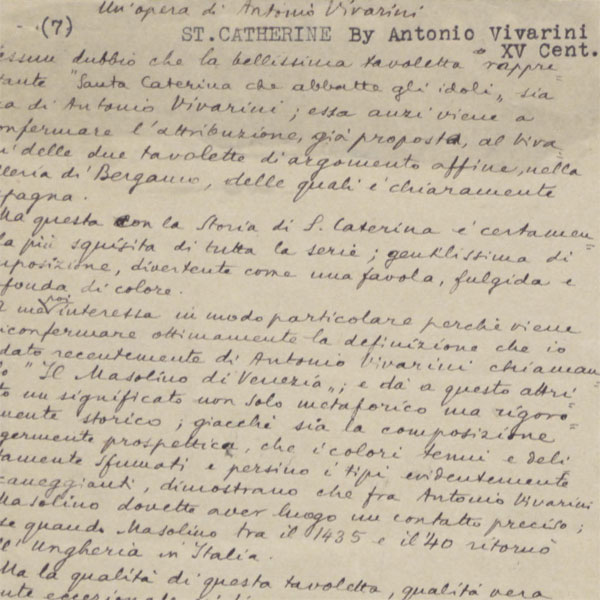 Un'opera di Antonio Vivarini
(7) ST.CATHERINE By Antonio Vivarini
XV Cent.
essun dubbio che la bellissima tavoletta rappre=
tante "Santa Caterina che abbatte gli idoli„ sia
ra di Antonio Vivarini; essa anzi viene a
onfermare l'attribuzione, già proposta, al Viva=
ni delle due tavolette di argomento affine, nella
lleria di Bergamo, delle quali è chiaramente
mpagna.
Ma questa con la Storia di S. Caterina è certamen=
la più squisita di tutta la serie; gentilissima di
mposizione, divertente come una favola, fulgida e
ofonda di colore.
A me poi interessa in modo particolare perchè viene
riconfermare ottimamente la definizione che io
dato recentemente di Antonio Vivarini chiaman=
o "Il Masolino di Venezia„; e dà a questo attri=
to un significato non solo metaforico ma rigoro=
mente storico; giacchè sia la composizione
germente prospettica, che i colori tenui e deli
tamente sfumati e persino i tipi evidentemente
caneggianti, dimostrano che fra Antonio Vivarini
Masolino dovette aver luogo un contatto preciso;
se quando Masolino tra il 1435 e il '40 ritornò
ll'Ungheria in Italia.
Ma la qualità di questa tavoletta, qualità vera